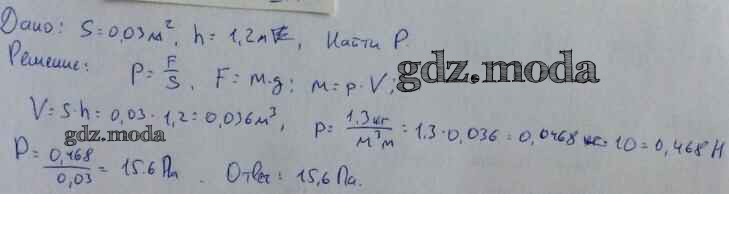 Дано: S=0,03м², h=1,2м, Найти P.
Решение: P=F/S, F=m·g; m=ρ·V;
gdz.moda
V=S·h=0,03·1,2=0,036м³, ρ=1,3кг/м³ m=1.3·0,036=0,0468 кг·10=0,468Н
gdz.moda
P=0,468/0,03=15.6Па. Ответ: 15,6Па.